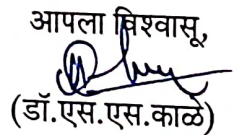 आपला विश्वासू,
(डॉ.एस.एस.काळे)